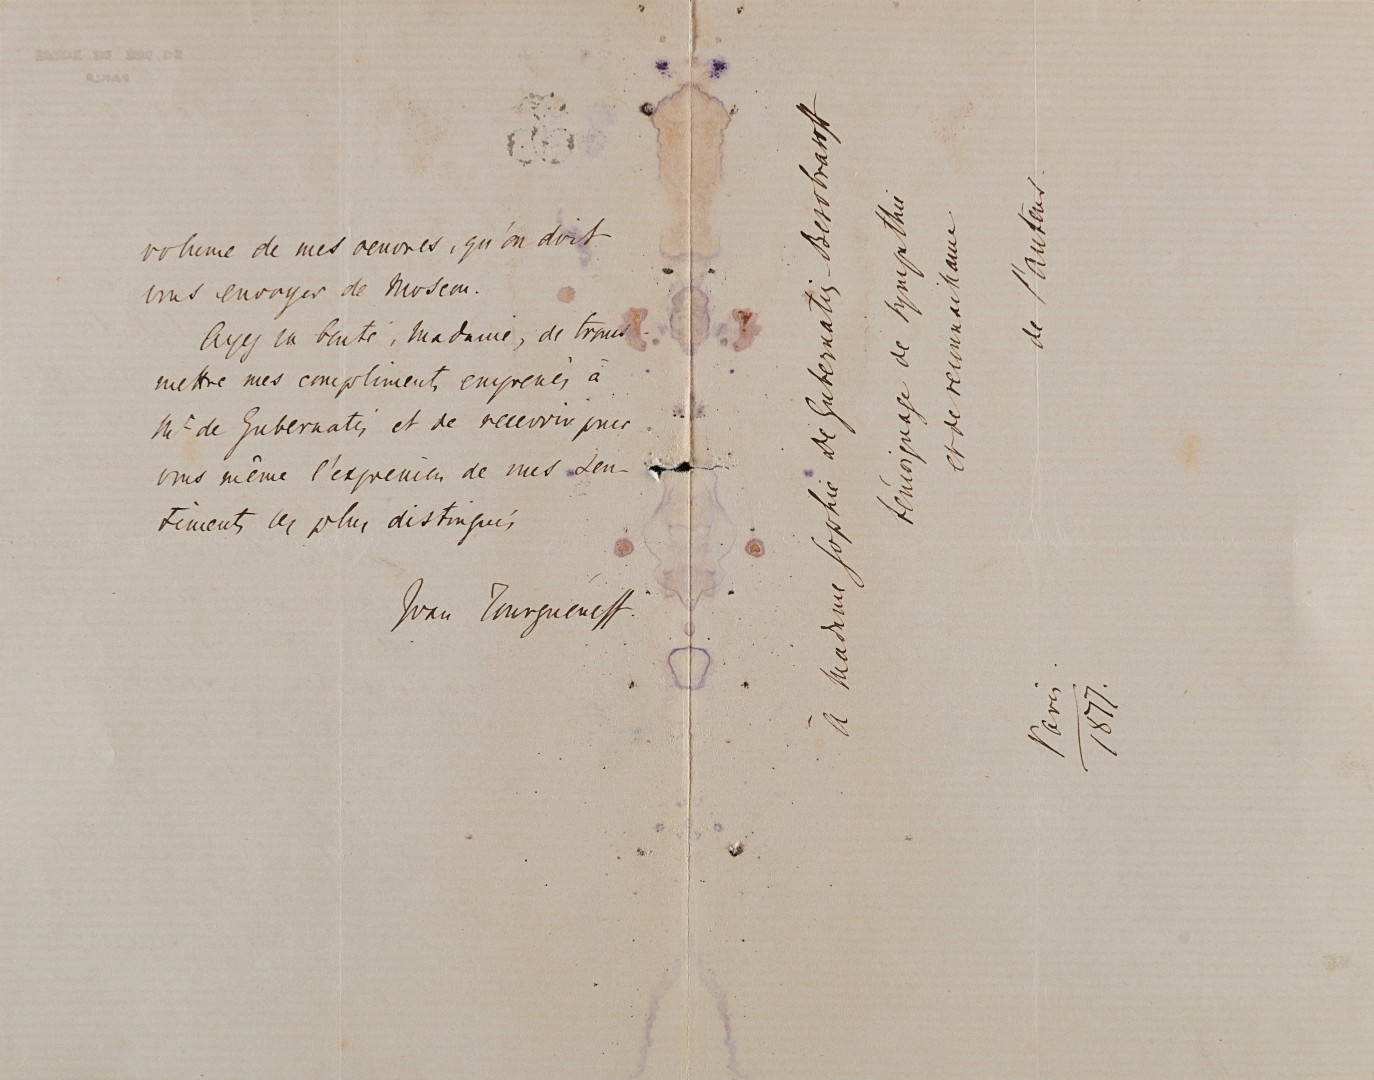 volume de mes oeuvres, qu'on doit
vous envoyer de Moscou.
Ayez la bonté, Madame, de trans-
mettre mes compliments empressés à
Mr de Gubernatis et de recevoir pour
vous même l'expression de mes sen-
timents les plus distingués
Ivan Tourguéneff.
à Madame Sophie de Gubernatis-Besobrasoff
témoignage de sympathie
et de reconnaissance
de l'auteur.
Paris
1877.